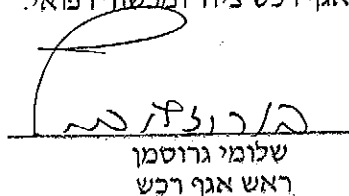 אגף רכש ציוד ומכשור רפואי.
שלומי גרוסמן
ראש אגף רכש